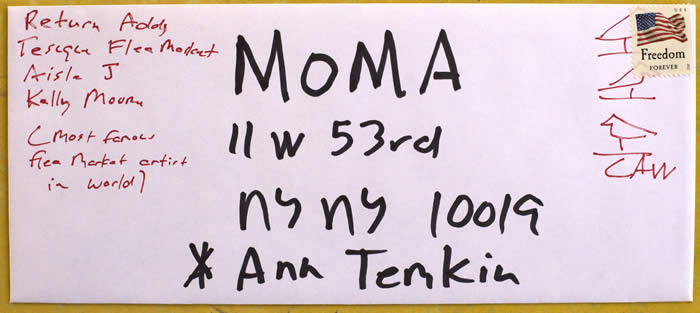 Return Addy
Tesuque Flea Market
Aisle J
Kelly Moore
(Most famous
flea market artist
in world)
MoMA
11 W 53rd
ny ny 10019
* Ann Temkin
USA
Freedom
FOREVER
CAW